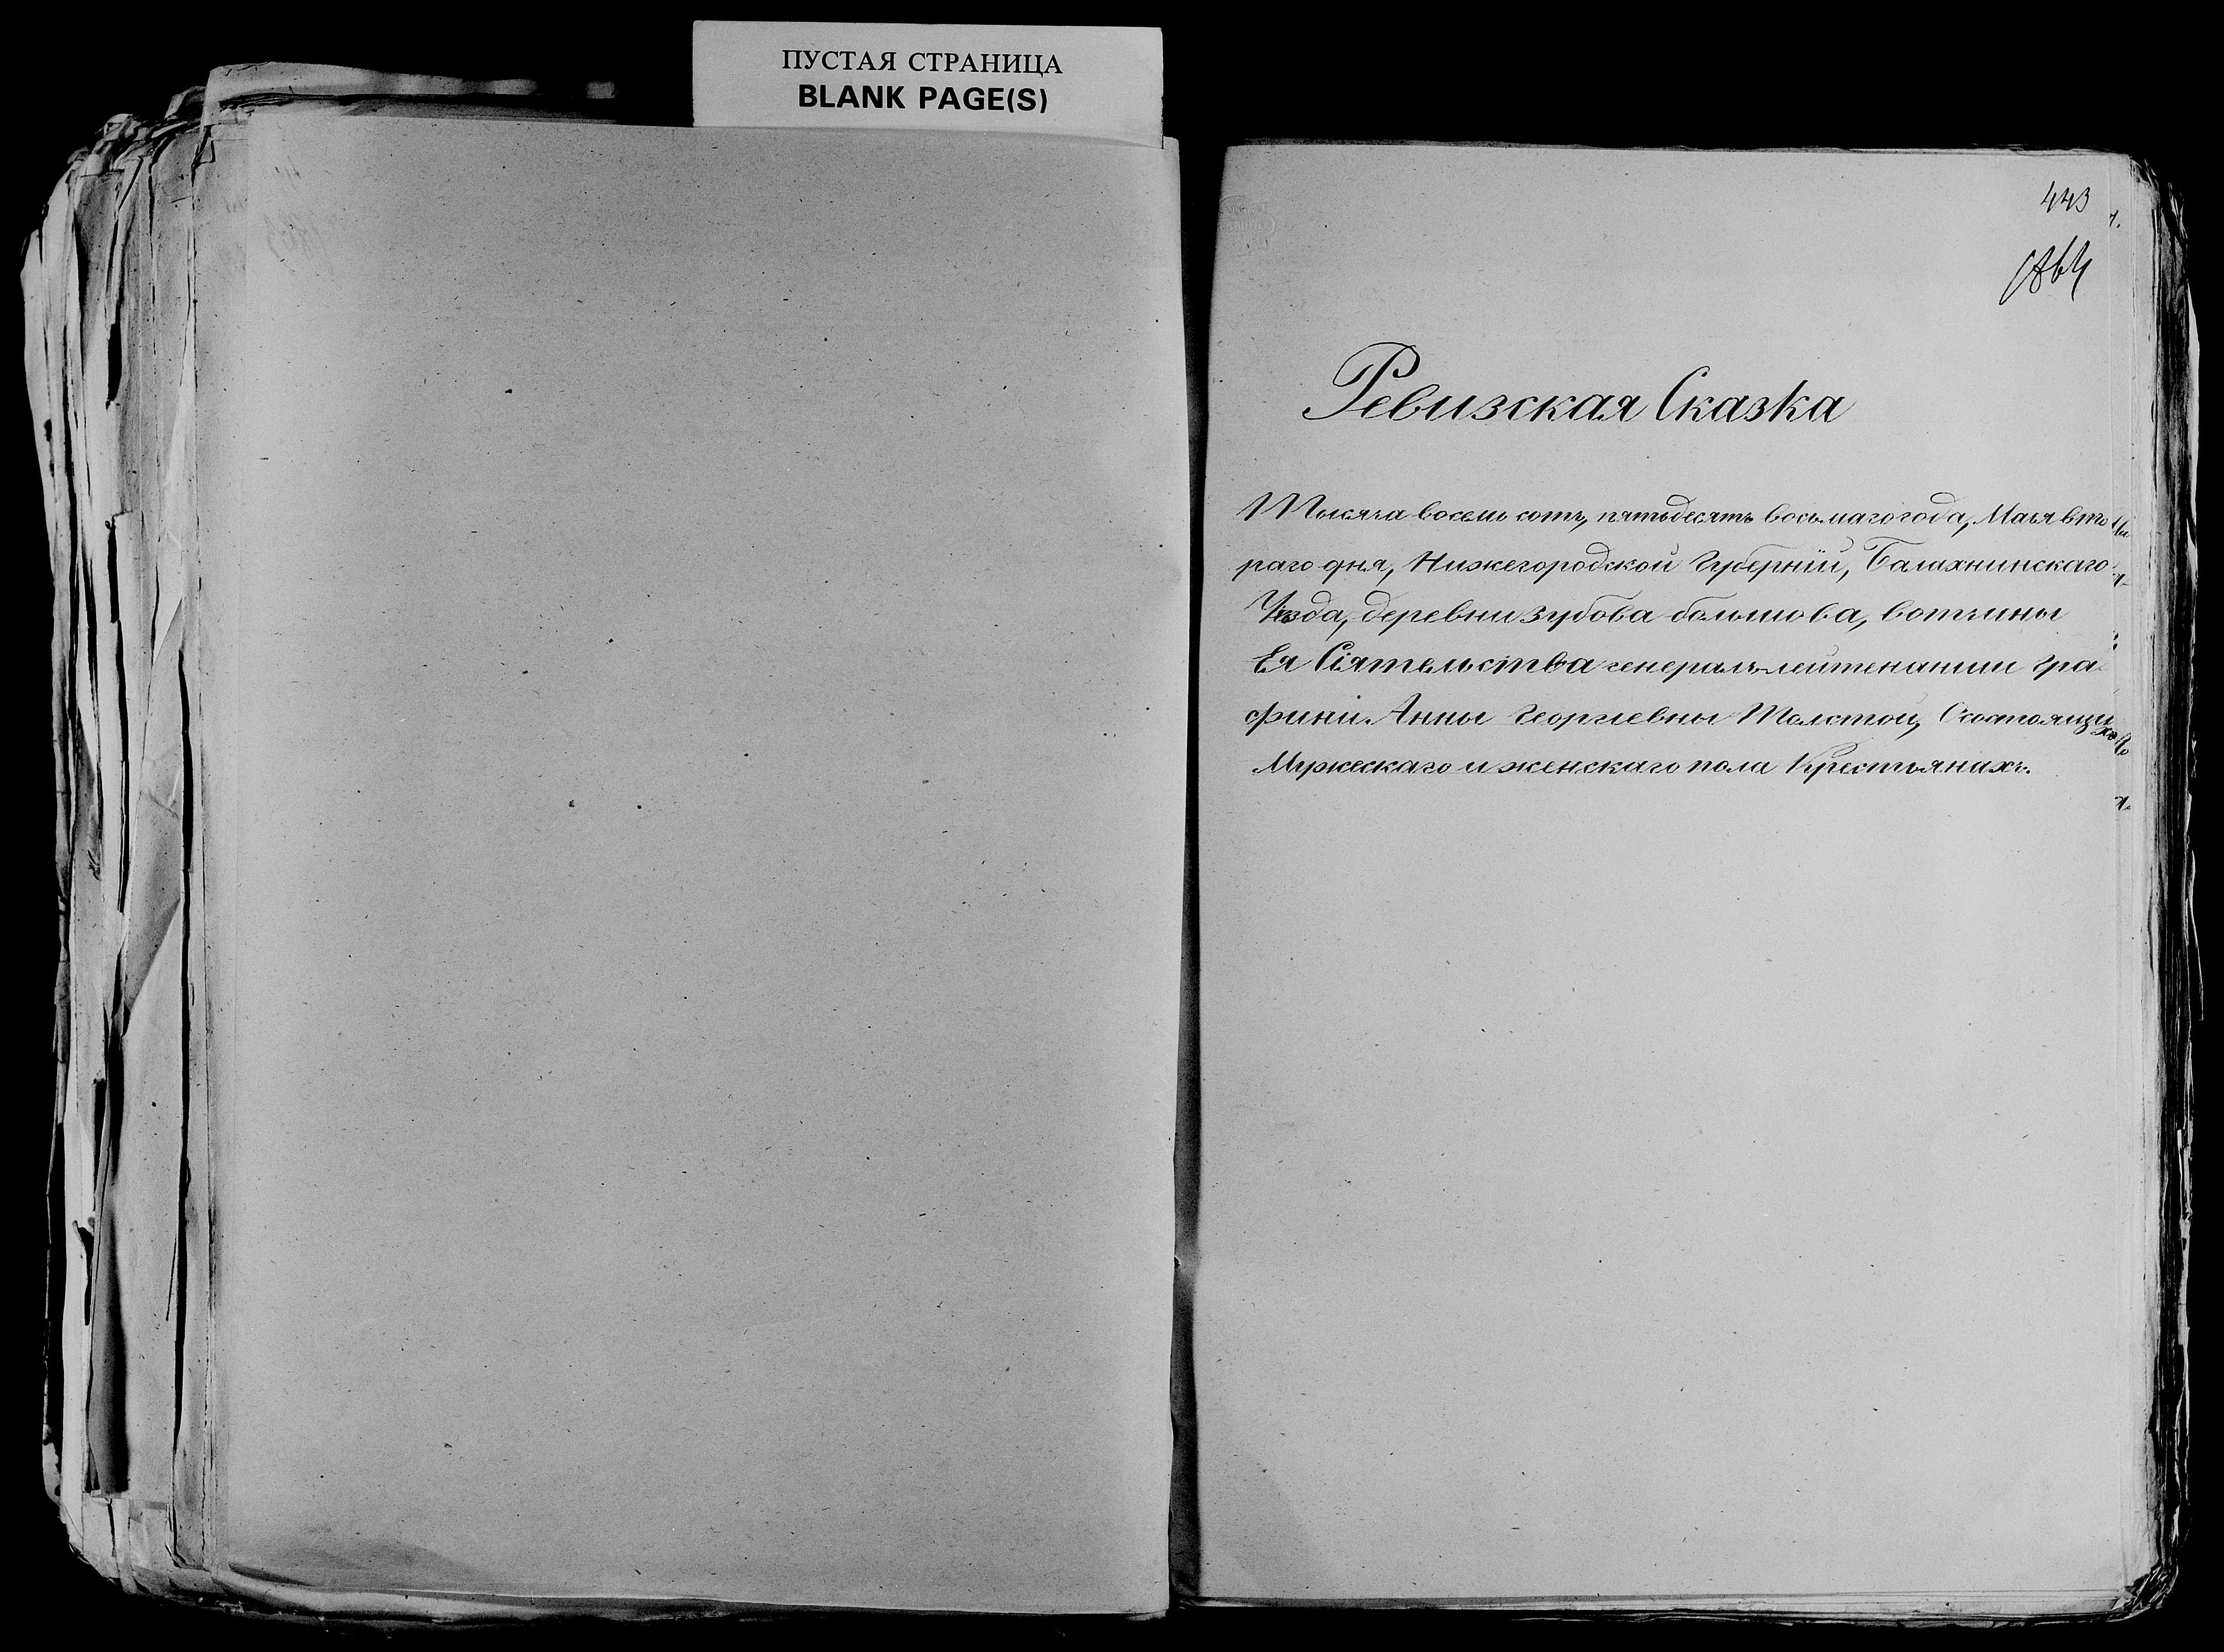 ПУСТАЯ СТРАНИЦА
BLANK PAGE(S)
443
1864
Ревизская Сказка
Тысяча восемь сотъ, пятьдесятъ восьмаго года, Маия вто
раго дня, Нижегородской Губерніи, Балахнинскаго
Уѣзда, деревни Зубова большова, вотчины
Ея Сіятельства генералъ-лейтенанши гра
фини Анны Георгиевны Толстой, Осостоящихъ
Мужескаго и женскаго пола Крестьянахъ.